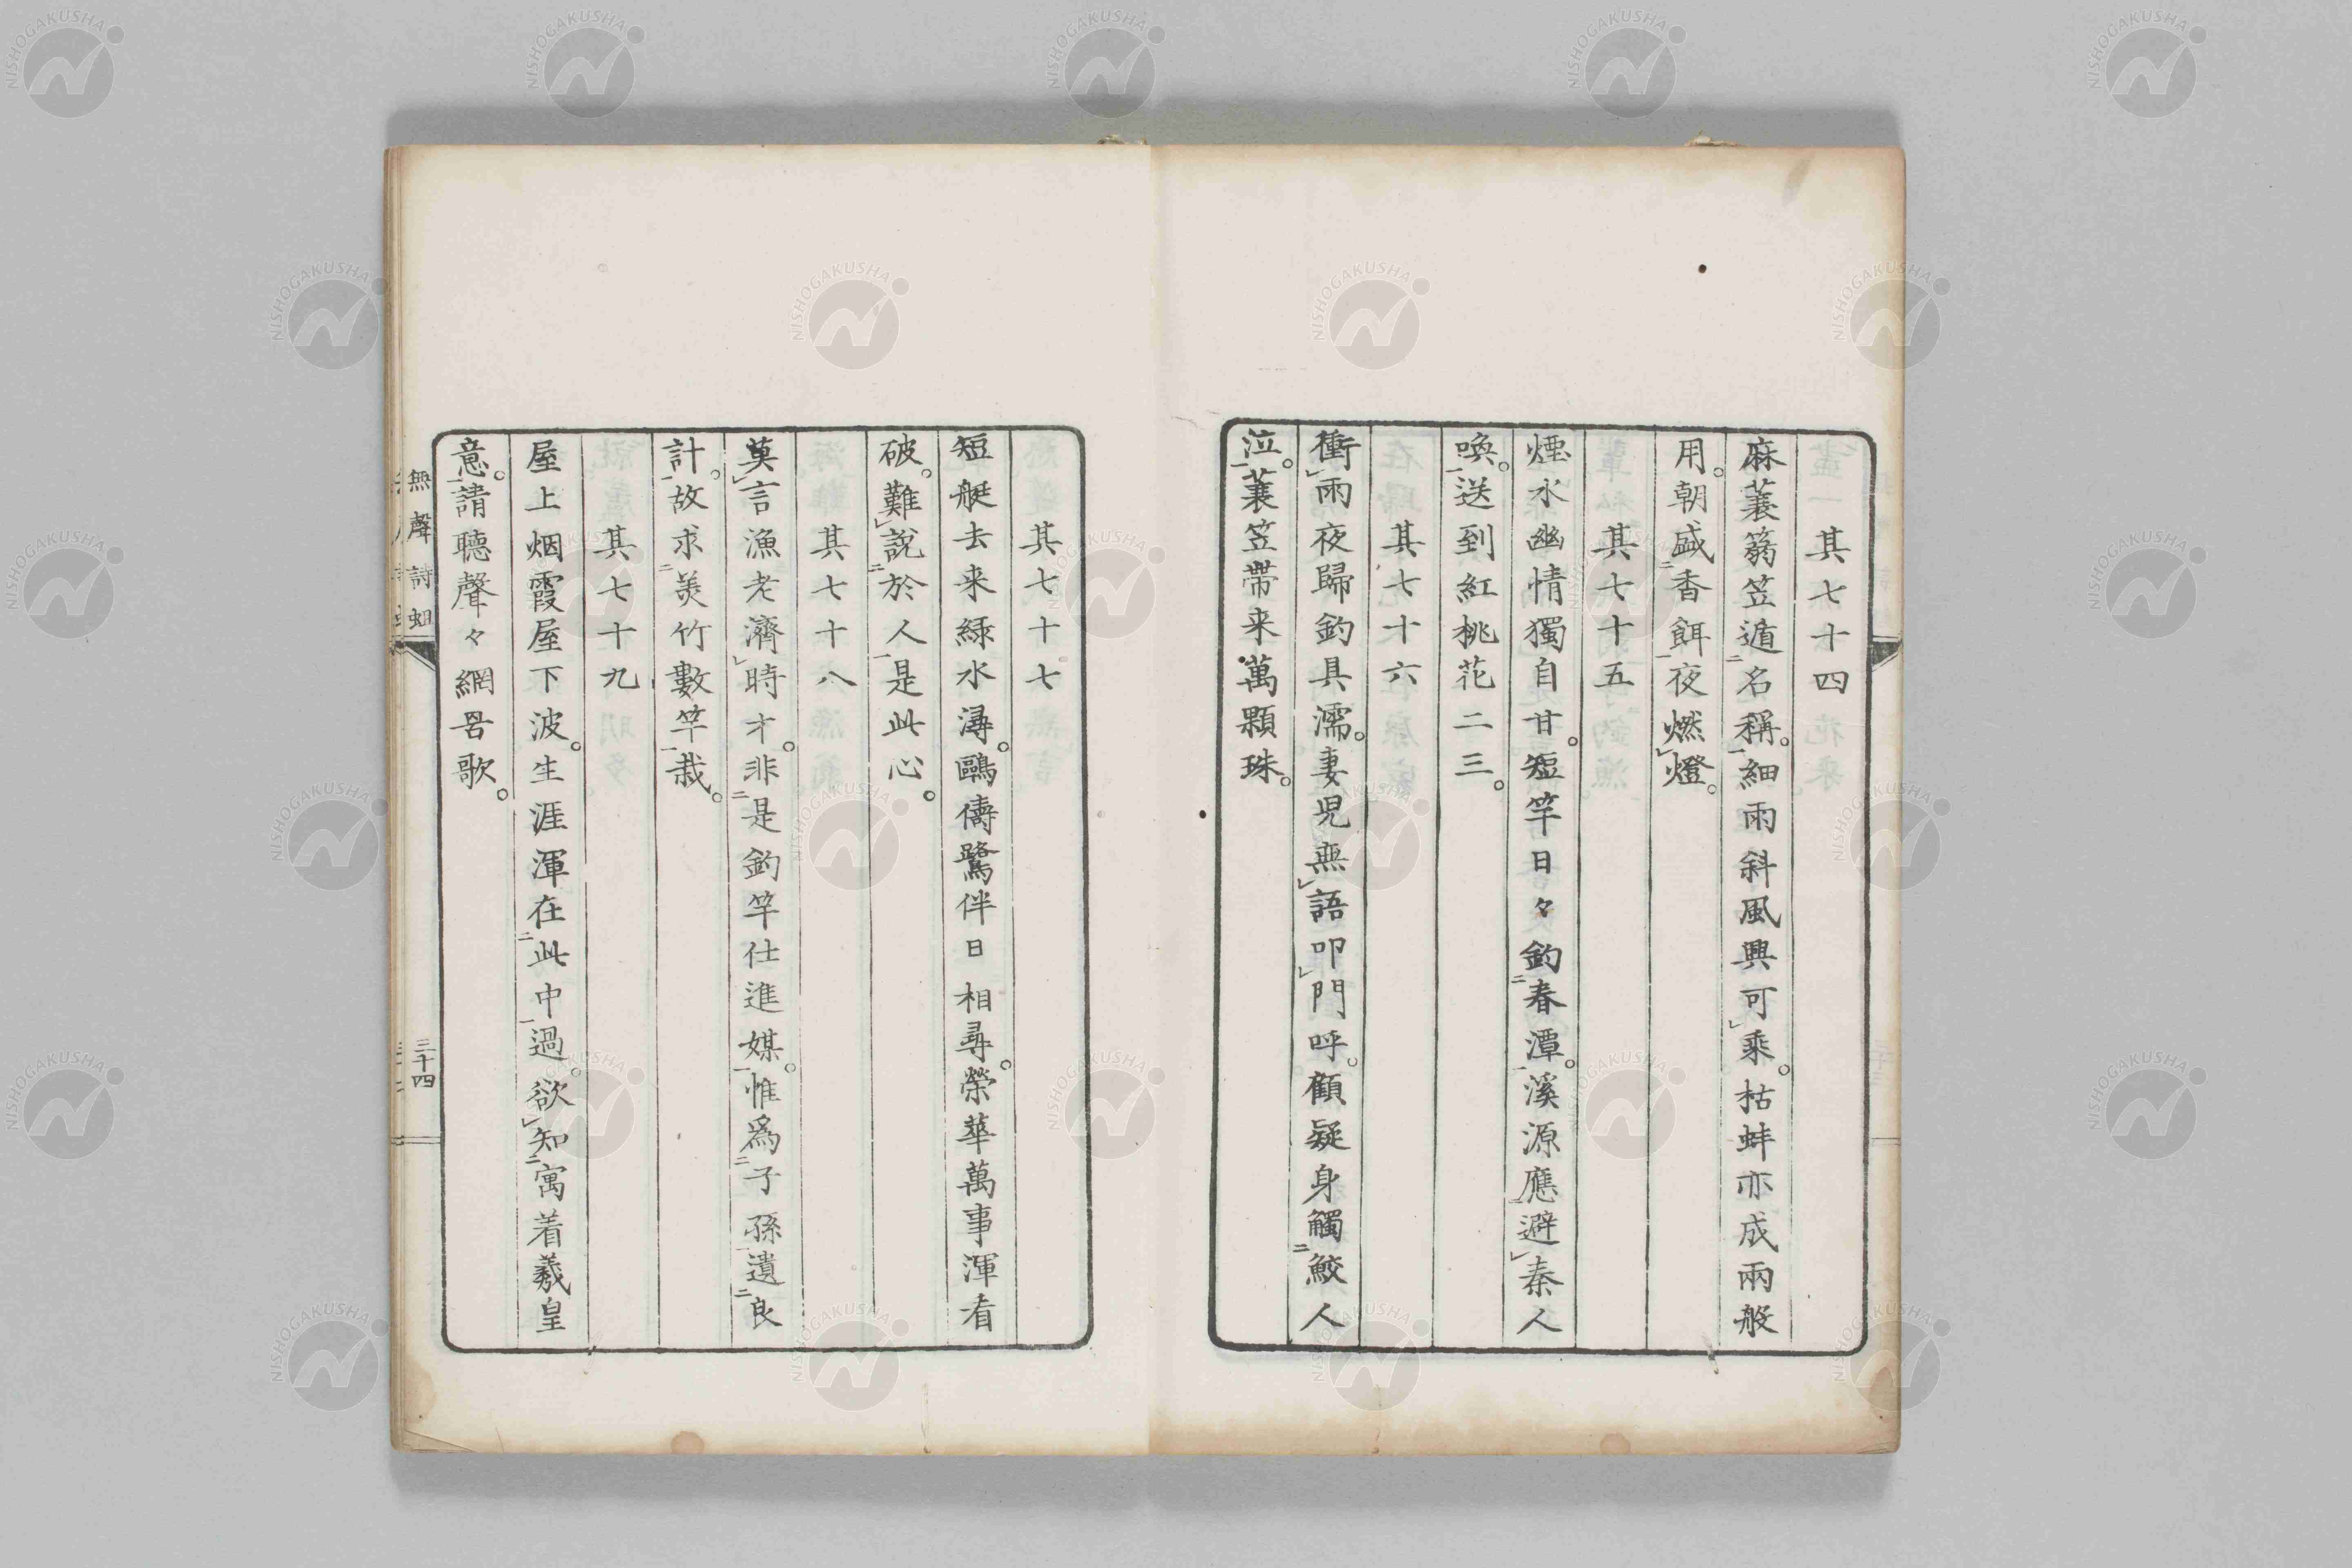 其七十四
麻蓑蒻笠遁名稱。細雨斜風興可乘。枯蚌亦成兩般
用。朝盛香餌夜燃燈。
其七十五
煙水幽情獨自甘。短竿日々釣春潭。溪源應避秦人
喚。送到紅桃花二三。
其七十六
衝雨夜歸釣具濡。妻児無語叩門呼。顧疑身觸鮫人
泣。蓑笠帶来萬顆珠。
其七十七
短艇去来緑水潯。鷗儔鷺伴日相尋。榮華萬事渾看
破。難說於人是此心。
其七十八
莫言漁老濟時才。非是釣竿仕進媒。惟為子孫遺良
計。故求美竹數竿栽。
其七十九
屋上烟霞屋下波。生涯渾在此中過。欲知寓着羲皇
意。請聽聲々網罟歌。
無聲詩蛆
三十四
NISHOGAKUSHA